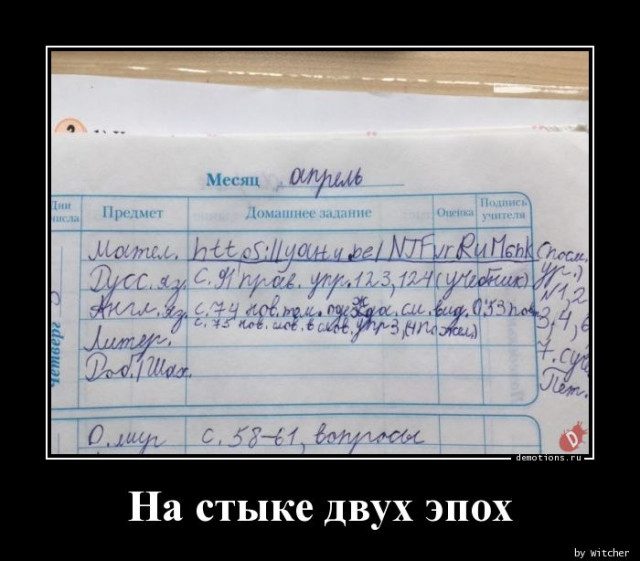 Месяц апрель
Дни
числа
Предмет
Домашнее задание
Оценка
Подпись
учителя
Четверг
Матем. https://youtu.be/NTFvrRuM6hk (Посм.
ур.)
Русс. яз. с. 91 прав. упр. 123, 124 (учебник)
№1, 2
Англ. яз. с. 74 нов. тем. одежда см. вид. 0,53 пов.
3, 4, 6
с. 75 нов. слов. в слов. упр 3, (4 по жел.)
Литер.
7.
Род./Шах.
О. мир с. 58-61, вопросы
demotions.ru
На стыке двух эпох
by Witcher